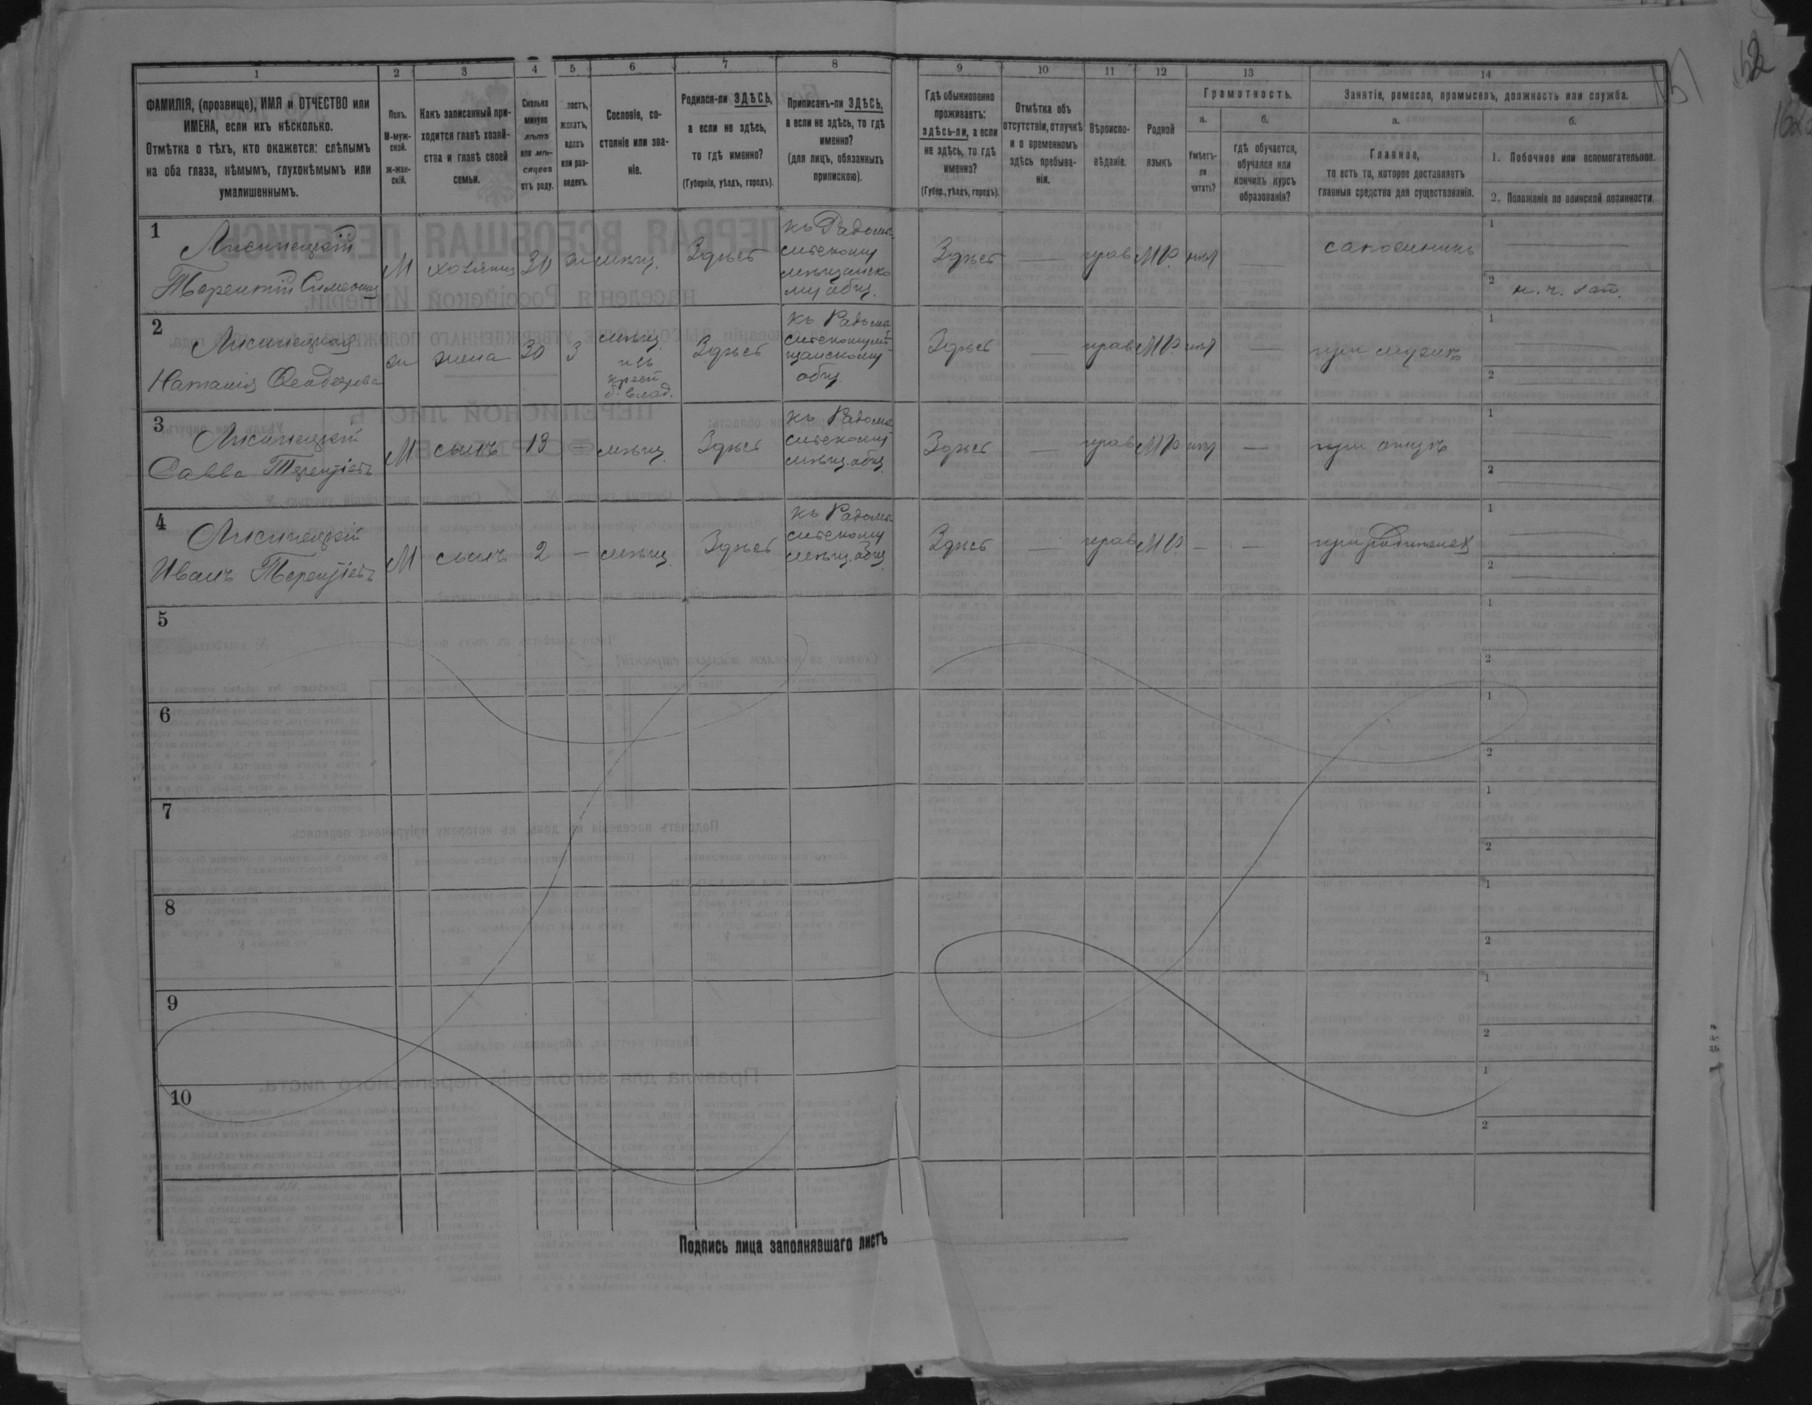 1 2 3 4 5 6 7 8 9 10 11 12 13 14
ФАМИЛІЯ, (прозвище), ИМЯ и ОТЧЕСТВО или
ИМЕНА, если ихъ нѣсколько.
Отмѣтка о тѣхъ, кто окажется: слѣпымъ
на оба глаза, нѣмымъ, глухонѣмымъ или
умалишеннымъ.
Полъ.
М-муж-
ской.
Ж-жен-
скій.
Какъ записанный при-
ходится главѣ хозяй-
ства и главѣ своей
семьи.
Сколько
минуло
лѣтъ
или мѣ-
сяцевъ
отъ роду.
лостъ,
женатъ,
вдовъ
или раз-
веденъ.
Сословіе, со-
стояніе или зва-
ніе.
Родился-ли ЗДѢСЬ,
а если не здѣсь,
то гдѣ именно?
(Губернія, уѣздъ, городъ).
Приписанъ-ли ЗДѢСЬ,
а если не здѣсь, то гдѣ
именно?
(для лицъ, обязанныхъ
припискою).
Гдѣ обыкновенно
проживаетъ:
здѣсь-ли, а если
не здѣсь, то гдѣ
именно?
(Губер., уѣздъ, городъ).
Отмѣтка объ
отсутствіи, отлучкѣ
и о временномъ
здѣсь пребыва-
ніи.
Вѣроиспо-
вѣданіе.
Родной
языкъ
Грамотность.
а.
Умѣетъ-
ли
читать?
б.
гдѣ обучается,
обучался или
кончилъ курсъ
образованія?
Занятіе, ремесло, промыселъ, должность или служба.
а.
Главное,
то есть то, которое доставляетъ
главныя средства для существованія.
б.
1. Побочное или вспомогательное.
2. Положеніе по воинской повинности.
1
Лисинецкій
Терентій Симеонов
М хозяинъ ж мѣщ. Здѣсь
къ Радомы-
сльскому
мѣщанско-
му общ.
Здѣсь — прав МР нѣт — сапожникъ
1 —
2 н. ч. зап.
2
Лисинецкая
Наталія
ж жена 30 з
мѣщ.
изъ
крест.
б. влад.
Здѣсь
къ Радомы-
общ.
Здѣсь — прав МР нѣт — при мужѣ
1 —
2 —
3
Лисинецкій
Савва Терентіевъ
М сынъ 13 — мѣщ. Здѣсь
къ Радомы-
сльскому
мѣщ. общ.
Здѣсь — прав МР нѣт — при отцѣ
1
2 —
4
Лисинецкій
Иванъ Терентіевъ
М сынъ 2 — мѣщ. Здѣсь
къ Радомы-
сльскому
мѣщ. общ.
Здѣсь — прав МР — — при родителях
1 —
2 —
5
1
2
6
1
2
7
1
2
8
1
2
9
1
2
10
1
2
Подпись лица заполнявшаго листъ